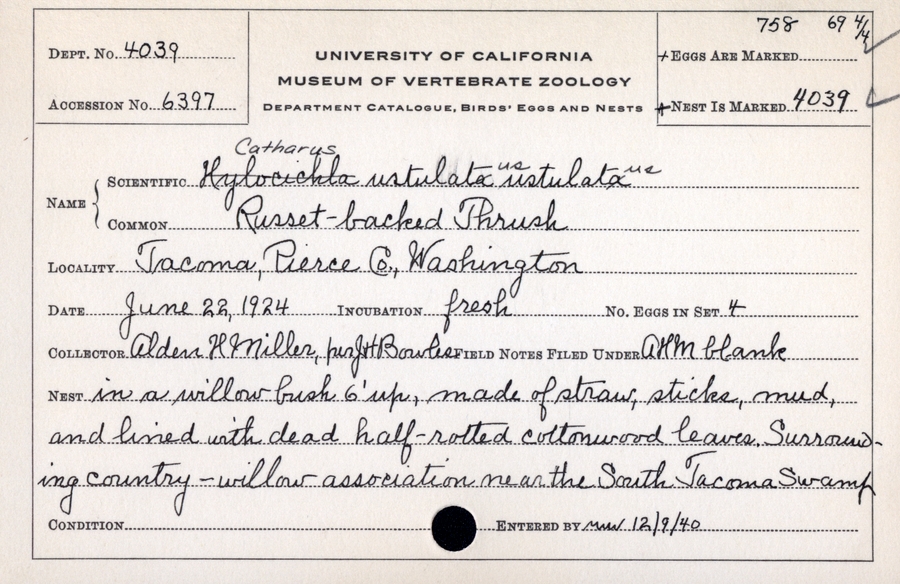 758 69 4/4
DEPT. No. 4039
UNIVERSITY OF CALIFORNIA
+EGGS ARE MARKED
MUSEUM OF VERTEBRATE ZOOLOGY
ACCESSION No. 6397
DEPARTMENT CATALOGUE, BIRDS' EGGS AND NESTS
+NEST IS MARKED 4039
Catharus
NAME
SCIENTIFIC Hylocichla ustulata us ustulata us
COMMON Russet-backed Thrush
LOCALITY Tacoma, Pierce Co., Washington
DATE June 22, 1924 INCUBATION fresh No. EGGS IN SET 4
COLLECTOR Alden H Miller, per J H Bowles FIELD NOTES FILED UNDER AHM blank
NEST in a willow bush 6' up, made of straw, sticks, mud,
and lined with dead half-rotted cottonwood leaves. Surround-
ing country - willow association near the South Tacoma Swamp
CONDITION ENTERED BY 12/9/40